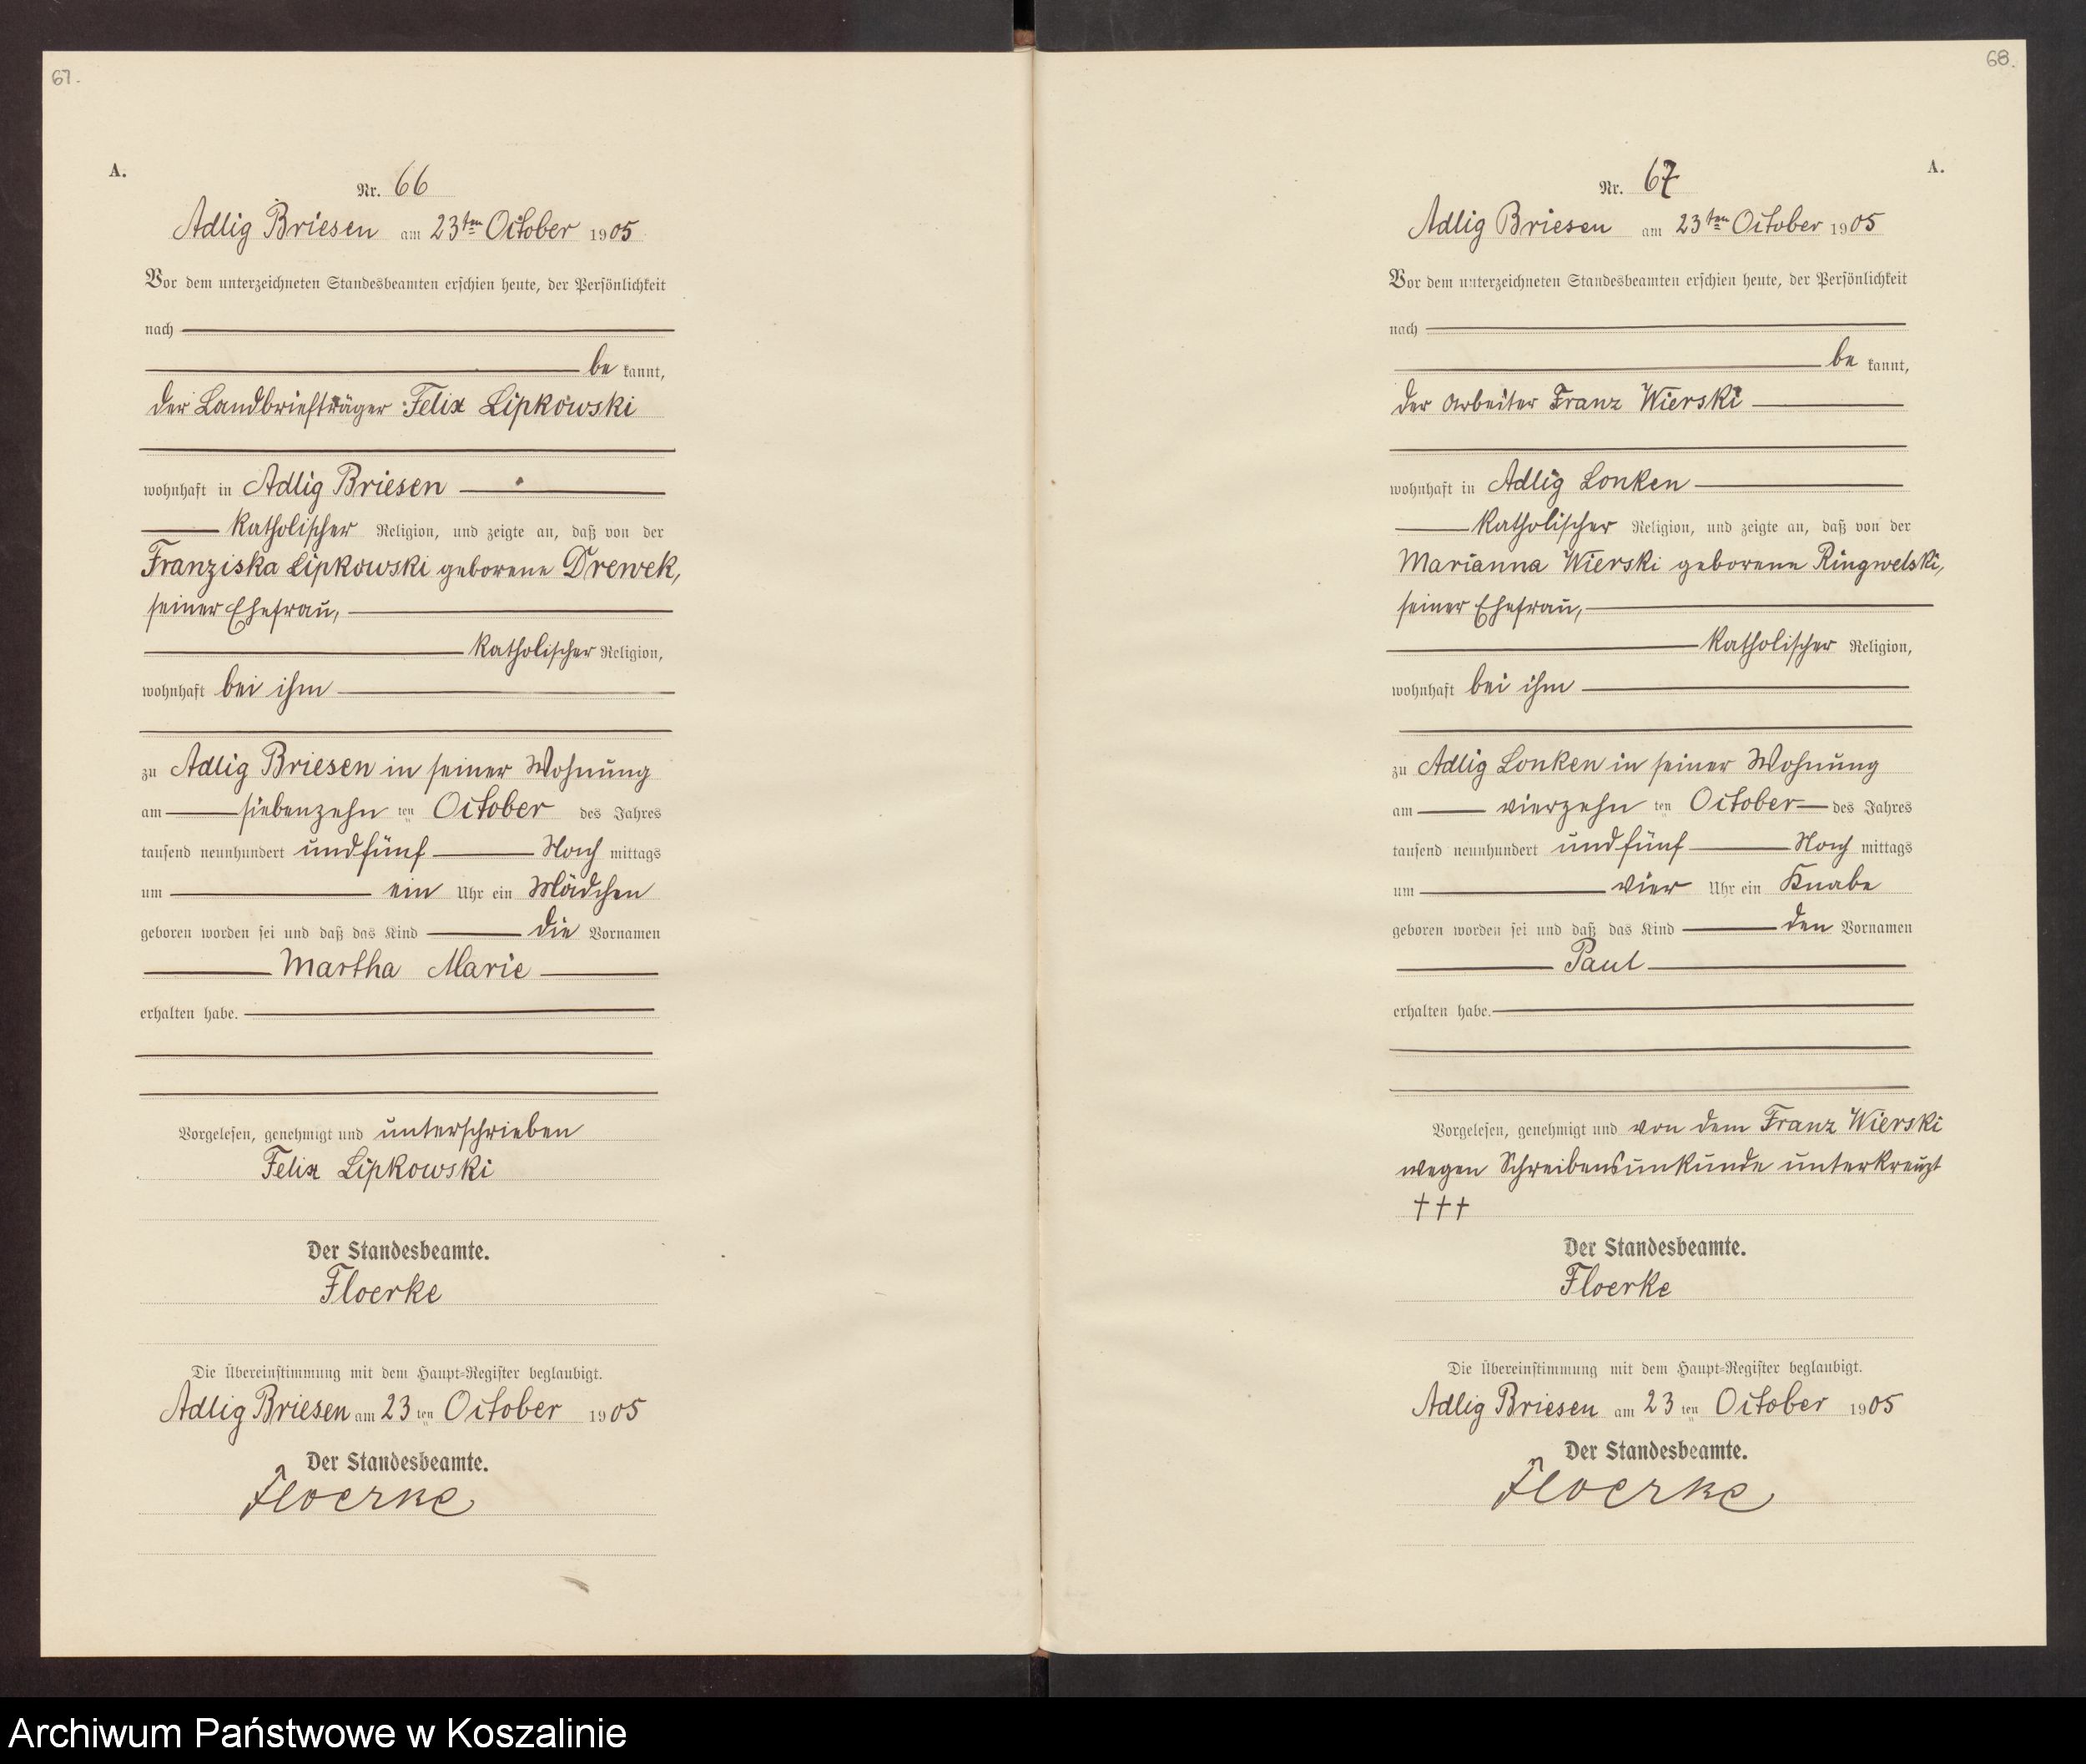 67.
A.
Nr. 66
Adlig Briesen am 23ten October 1905
Vor dem unterzeichneten Standesbeamten erschien heute, der Persönlichkeit
nach
be kannt,
der Landbriefträger Felix Lipkowski
wohnhaft in Adlig Briesen
katholischer Religion, und zeigte an, daß von der
Franziska Lipkowski geborene Drewek,
seiner Ehefrau,
katholischer Religion,
wohnhaft bei ihm
zu Adlig Briesen in seiner Wohnung
am siebenzehn ten October des Jahres
tausend neunhundert und fünf Nach mittags
um ein Uhr ein Mädchen
geboren worden sei und daß das Kind die Vornamen
Martha Marie
erhalten habe.
Vorgelesen, genehmigt und unterschrieben
Felix Lipkowski
Der Standesbeamte.
Floerke
Die Übereinstimmung mit dem Haupt-Register beglaubigt.
Adlig Briesen am 23 ten October 1905
Der Standesbeamte.
Floerke
68.
A.
Nr. 67
Adlig Briesen am 23ten October 1905
Vor dem unterzeichneten Standesbeamten erschien heute, der Persönlichkeit
nach
be kannt,
der Arbeiter Franz Wierski
wohnhaft in Adlig Lonken
katholischer Religion, und zeigte an, daß von der
Marianna Wierski geborene Ringwelski,
seiner Ehefrau,
katholischer Religion,
wohnhaft bei ihm
zu Adlig Lonken in seiner Wohnung
am vierzehn ten October des Jahres
tausend neunhundert und fünf Nach mittags
um vier Uhr ein Knabe
geboren worden sei und daß das Kind den Vornamen
Paul
erhalten habe.
Vorgelesen, genehmigt und von dem Franz Wierski
wegen Schreibensunkunde unterkreuzt
+++
Der Standesbeamte.
Floerke
Die Übereinstimmung mit dem Haupt-Register beglaubigt.
Adlig Briesen am 23 ten October 1905
Der Standesbeamte.
Floerke
Archiwum Państwowe w Koszalinie